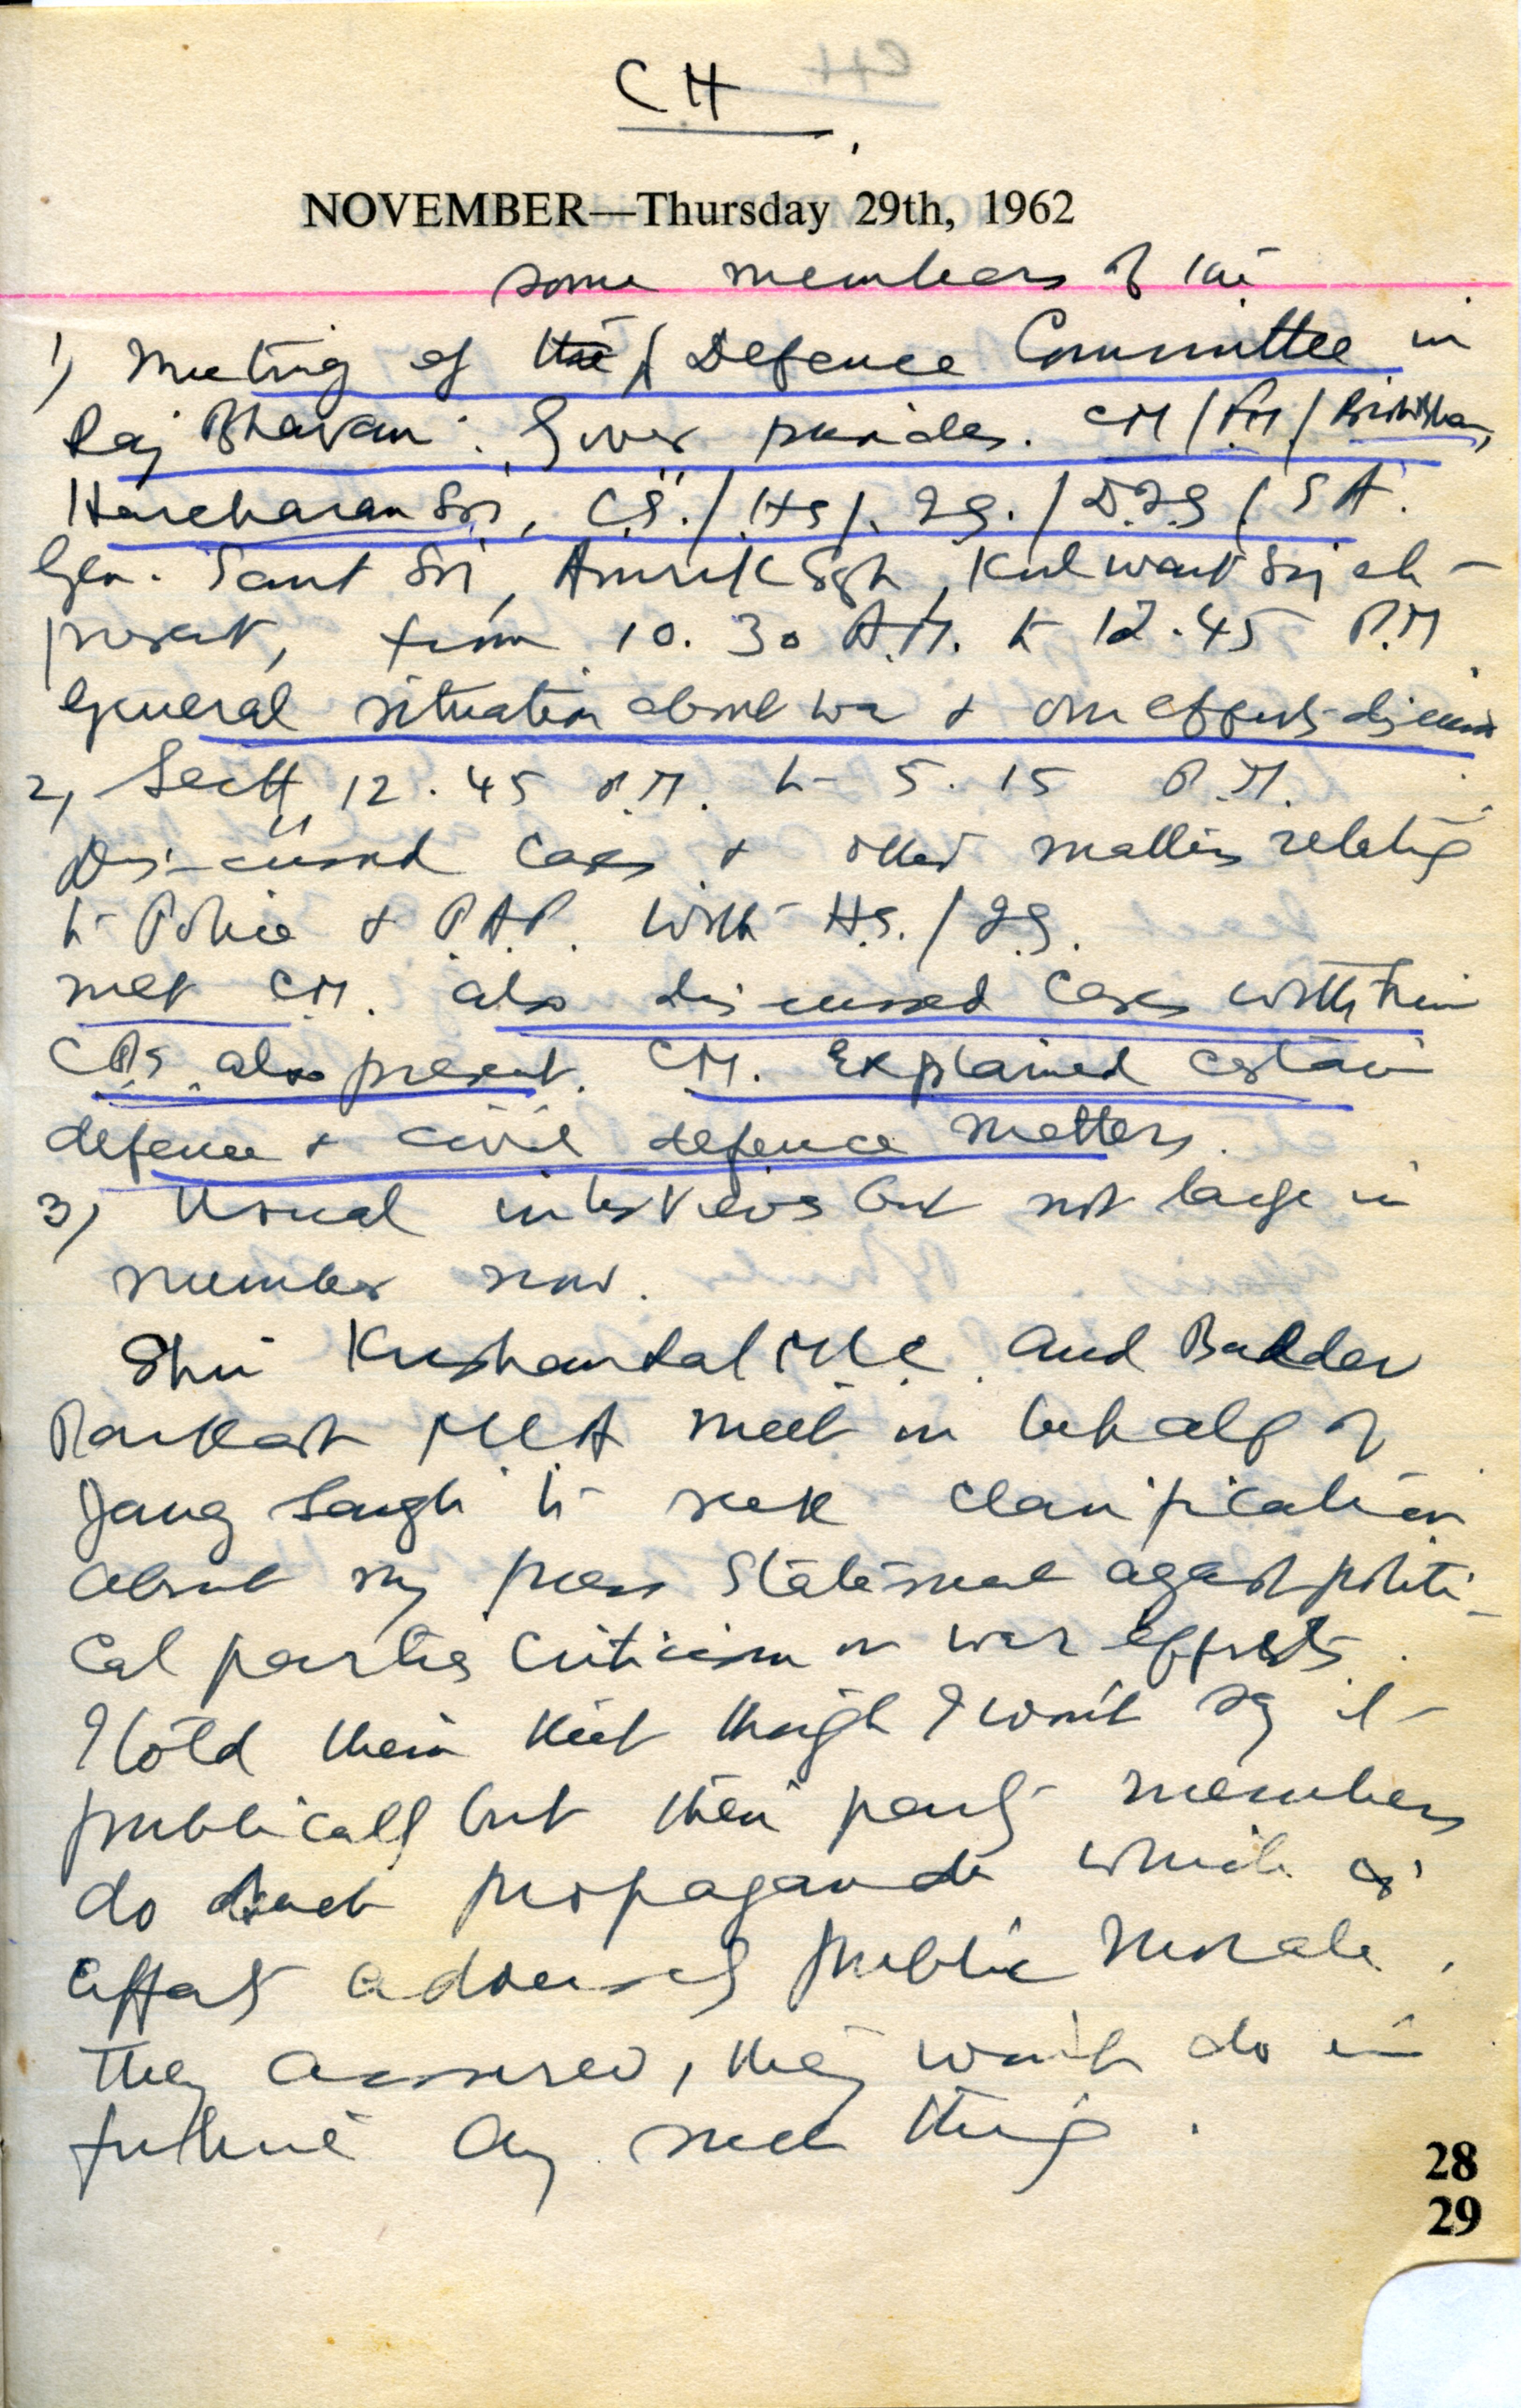 CH
NOVEMBER—Thursday 29th, 1962
some members of the
1) Meeting of the Defence Committee in
Raj Bhavan. Guver presides. CM/FM/Brish Bhan,
Harcharan Sgi, C.S./HS/. IG./D.IG/S A.
Gen. Sant Sgi, Amrik Sgh, Kulwant Sgi etc
present, from 10.30 A.M. to 12.45 P.M
General situation about war & our efforts discuss
2, Sectt, 12.45 P.M. to 5.15 P.M.
Discussed cases & other matters relating
to Police & P.A.P. with H.S./I.G.
met CM. also discussed cases with him
CPS also present. CM. Explained certain
defence & civil defence matters.
3) Usual interviews but not large in
number now.
Shri Krishanlal MLC. and Baldev
Parkash MLA meet on behalf of
Jang Sangh to seek clarification
about my press Statement against politi-
cal parties criticism on war efforts.
I told them that though I won't say it
publically but their party members
do such propaganda which
affects adversely public morale.
They assured, they won't do in
future any such thing.
28
29